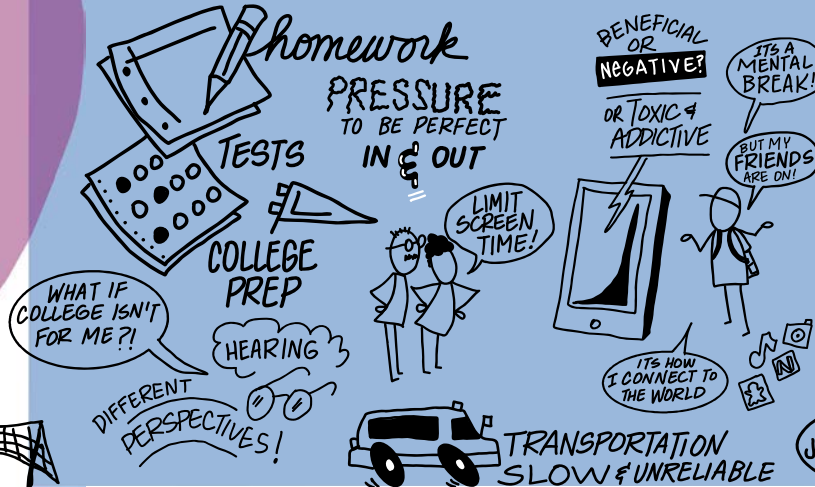 homework
PRESSURE
TO BE PERFECT
IN & OUT
TESTS
COLLEGE
PREP
WHAT IF
COLLEGE ISN'T
FOR ME?!
HEARING
DIFFERENT
PERSPECTIVES!
LIMIT
SCREEN
TIME!
BENEFICIAL
OR
NEGATIVE?
OR TOXIC &
ADDICTIVE
ITS A
MENTAL
BREAK!
BUT MY
FRIENDS
ARE ON!
ITS HOW
I CONNECT TO
THE WORLD
N
TRANSPORTATION
SLOW & UNRELIABLE